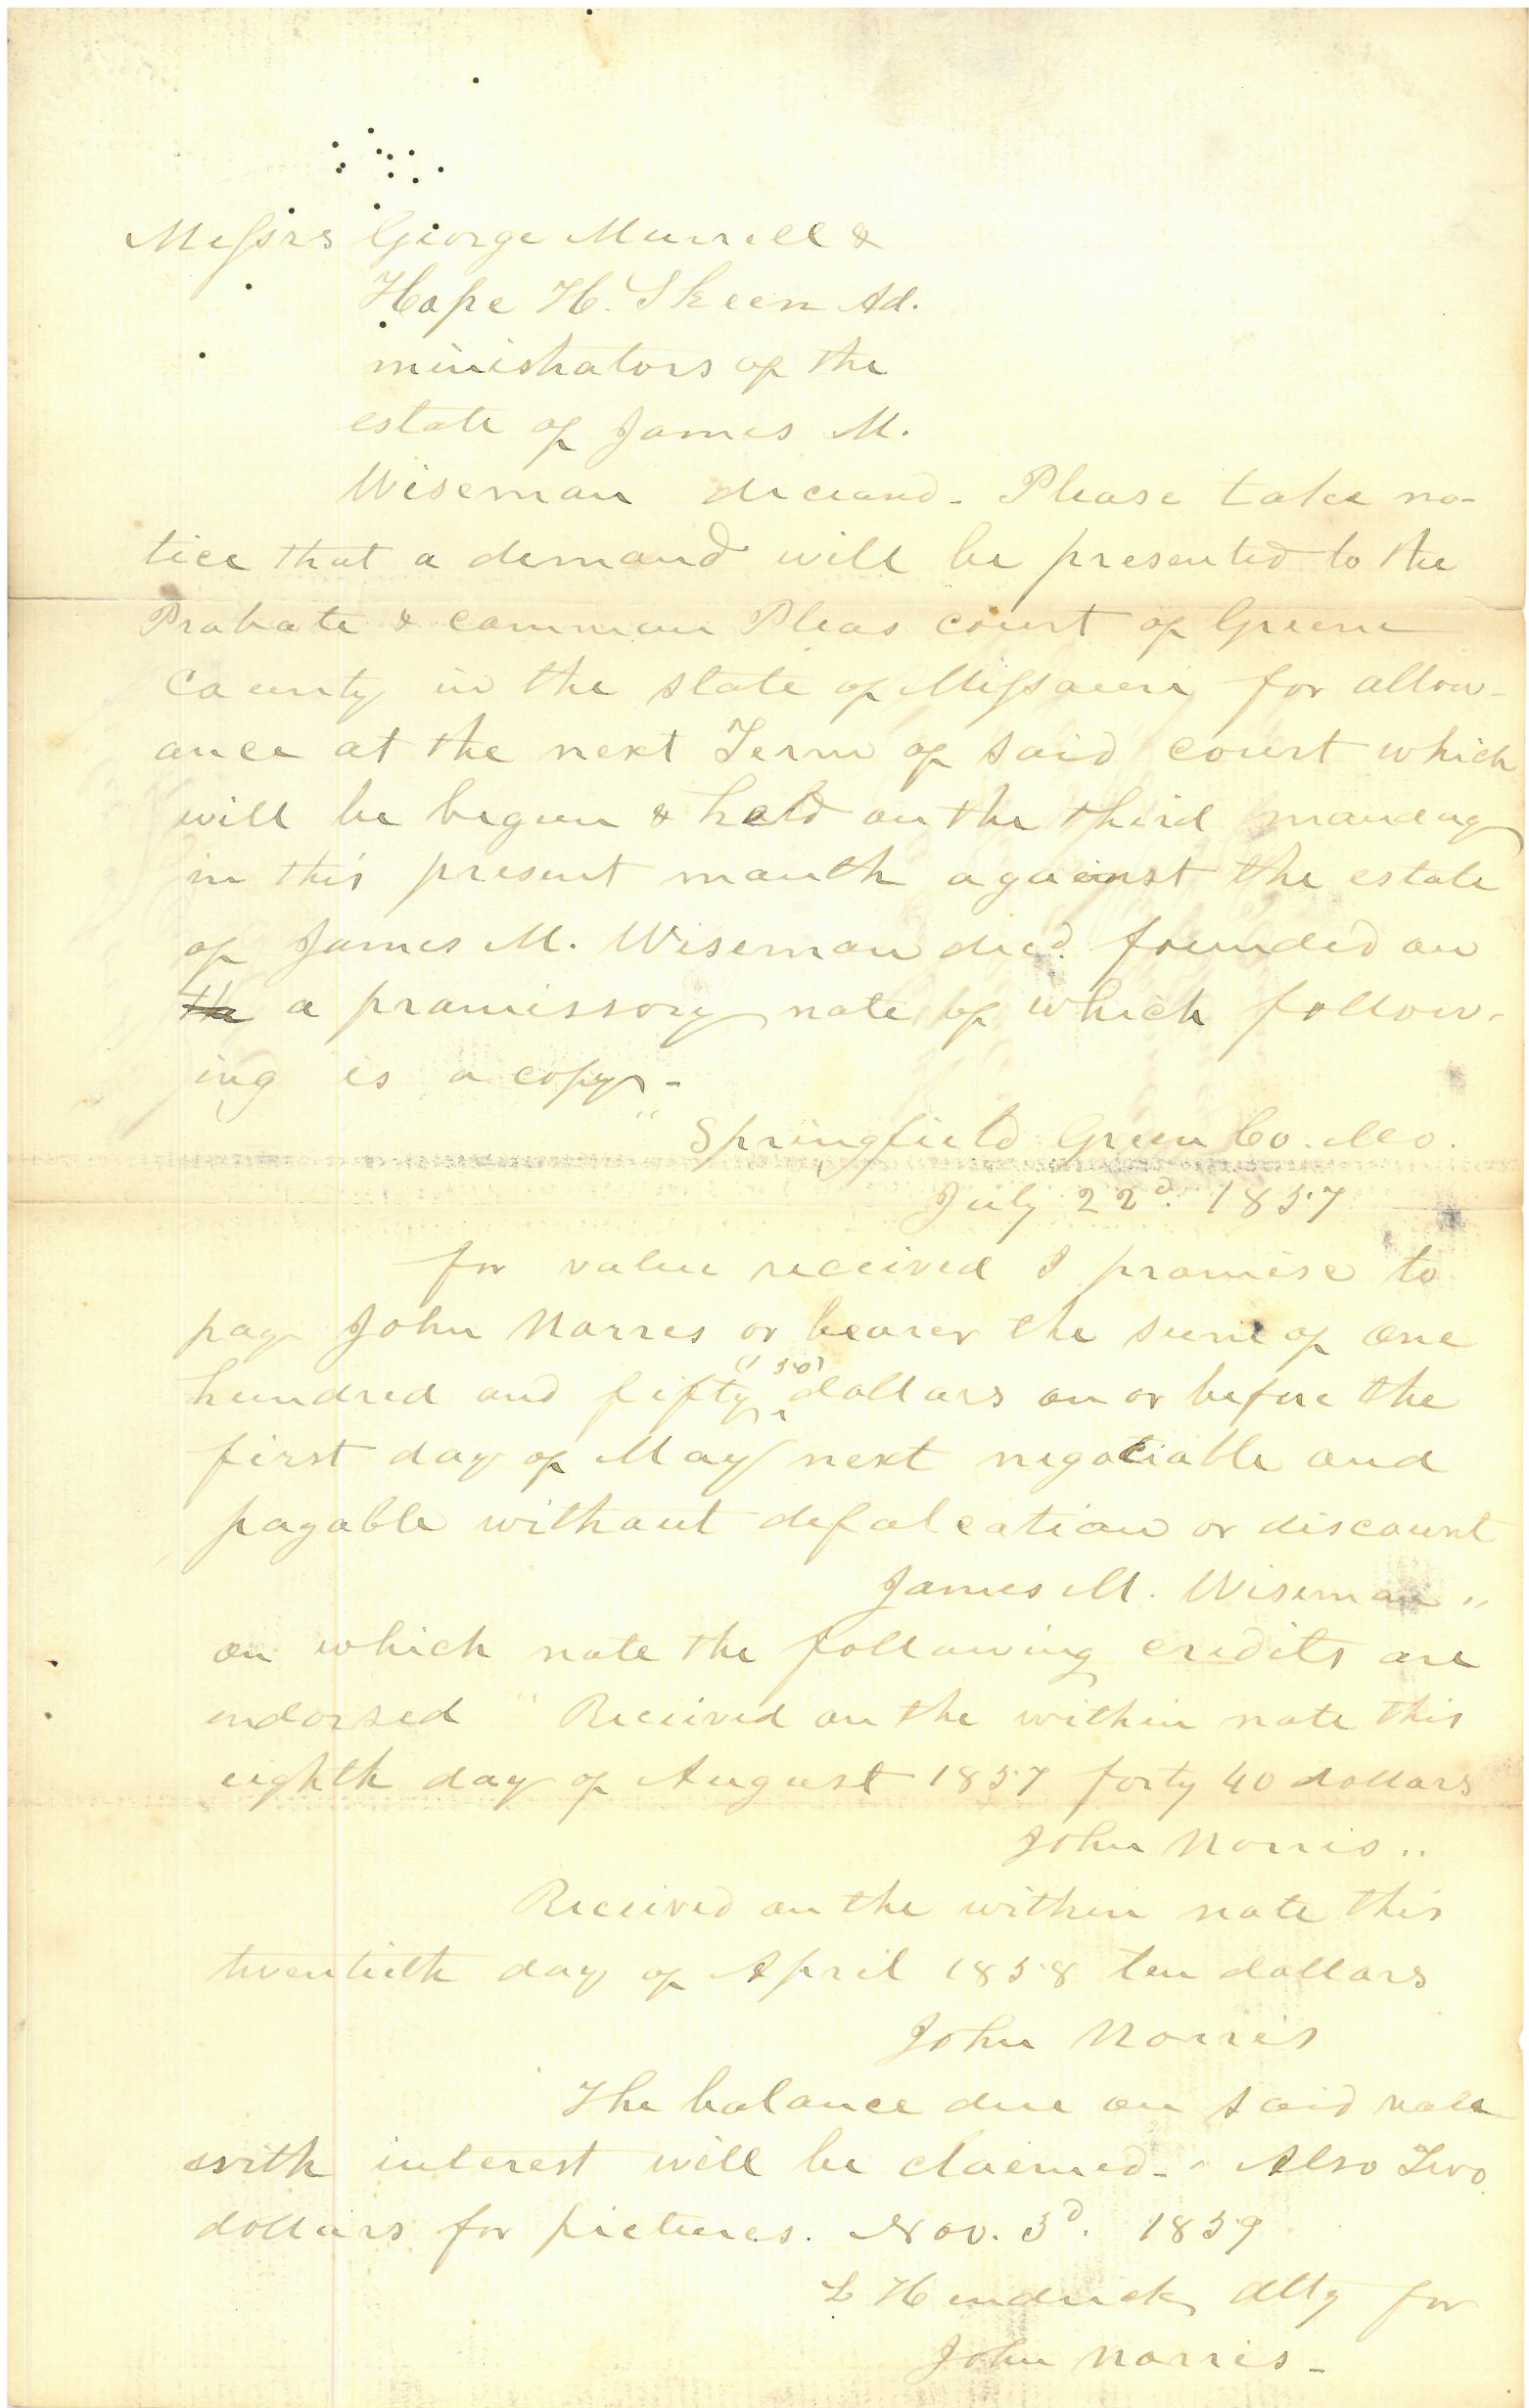 Messrs George Murrell &
Hope H. Skeen Ad-
ministrators of the
estate of James M.
Wiseman deceased - Please take no-
tice that a demand will be presented to the
Probate & common Pleas court of Greene
County in the state of Missouri for allow-
ance at the next Term of said court which
will be begun & held on the third monday
in this present month against the estate
of James M. Wiseman decd. founded on
a promissory note of which follow-
ing is a copy -
" Springfield Green Co. Mo.
July 22d. 1857
for value received I promise to
pay John Norres or bearer the sum of one
hundred and fifty "150" dollars on or before the
first day of May next negotiable and
payable without defalcation or discount
James M. Wiseman "
on which note the following credits are
endorsed " Received on the within note this
eighth day of August 1857 forty 40 dollars
John Norris "
Received on the within note this
twentieth day of April 1858 ten dollars
John Norris
The balance due on said note
with interest will be claimed - Also Two
dollars for pictures. Nov. 3d. 1859
L Hendrick Atty for
John Norris -